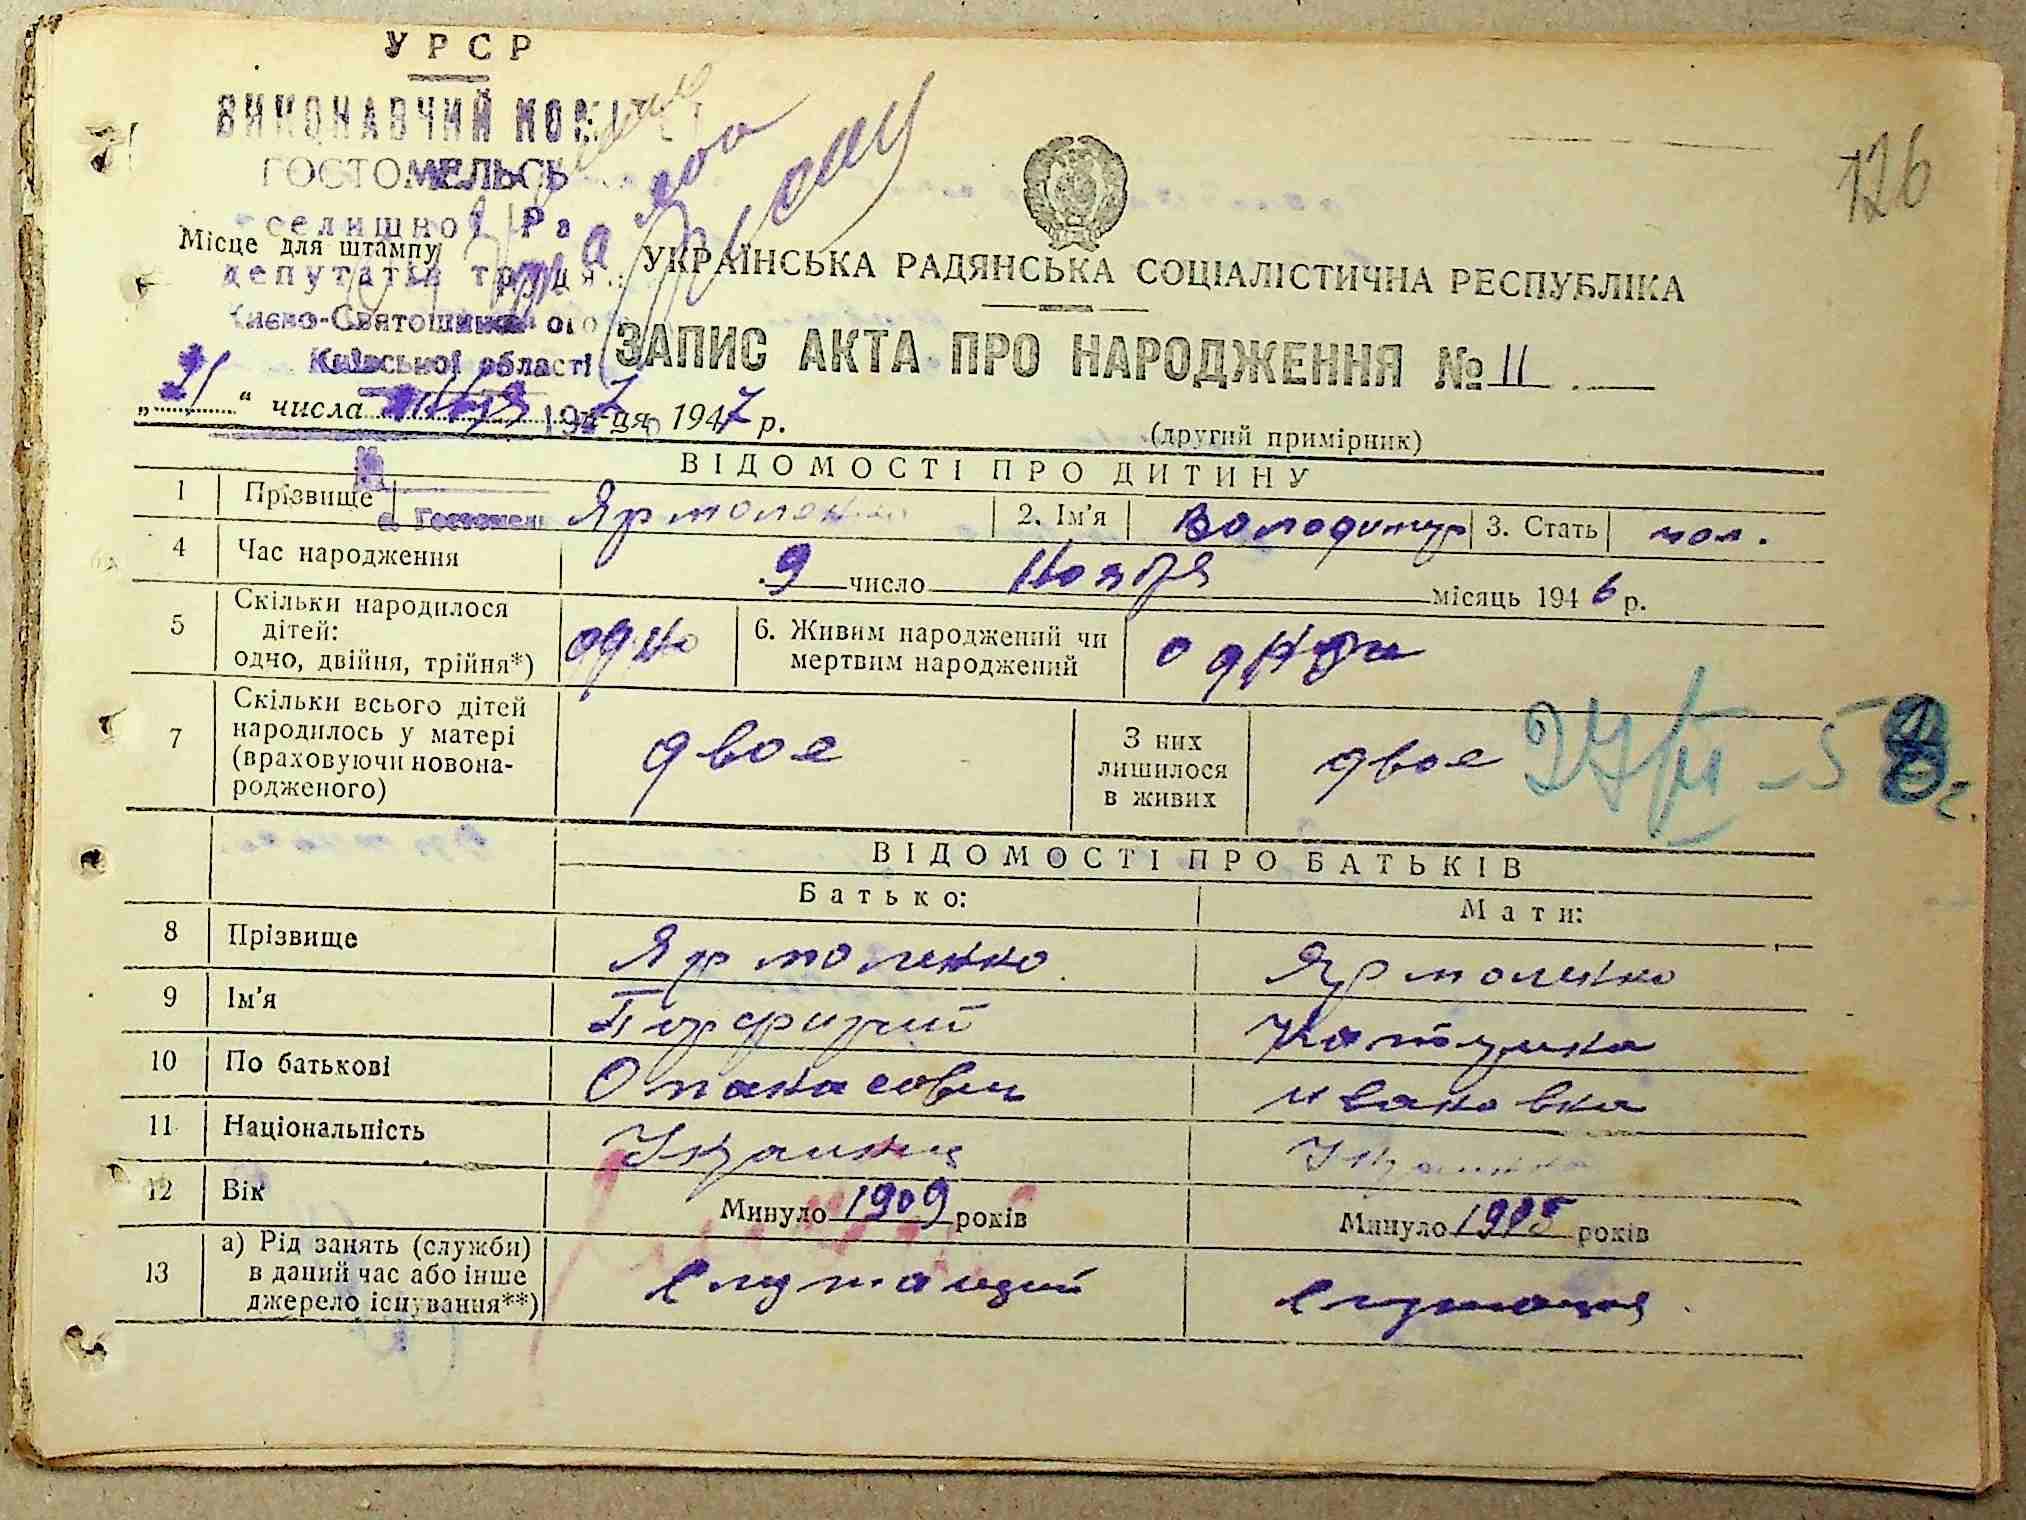 УРСР
ВИКОНАВЧИЙ КОМІТЕТ
ГОСТОМЕЛЬСЬ
селищної Ра
Місце для штампу
депутатів трудя
Києво-Святошинського
Київської області
126
УКРАЇНСЬКА РАДЯНСЬКА СОЦІАЛІСТИЧНА РЕСПУБЛІКА
ЗАПИС АКТА ПРО НАРОДЖЕННЯ № 11
„21“ числа м-ця 1947 р.
(другий примірник)
ВІДОМОСТІ ПРО ДИТИНУ
с. Гостомель
1 Прізвище Ярмоленко 2. Ім'я Володимир 3. Стать чол.
4 Час народження 9 число Ноября місяць 1946 р.
5 Скільки народилося дітей: одно, двійня, трійня*) одно 6. Живим народжений чи мертвим народжений
7 Скільки всього дітей народилось у матері (враховуючи новонародженого) двое З них лишилося в живих двое
27/VI-58 г.
ВІДОМОСТІ ПРО БАТЬКІВ
Батько: Мати:
8 Прізвище Ярмоленко Ярмоленко
9 Ім'я Порфирий
10 По батькові Опанасович Ивановна
11 Національність Украинец Украинка
12 Вік Минуло 1909 років Минуло 1915 років
13 а) Рід занять (служби) в даний час або інше джерело існування**) Служащий Служащая